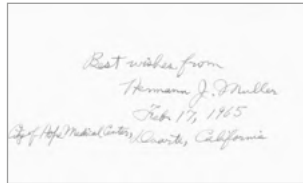 Best wishes from
Hermann J. Muller
Feb. 17, 1965
City of Hope Medical Center, Duarte, California